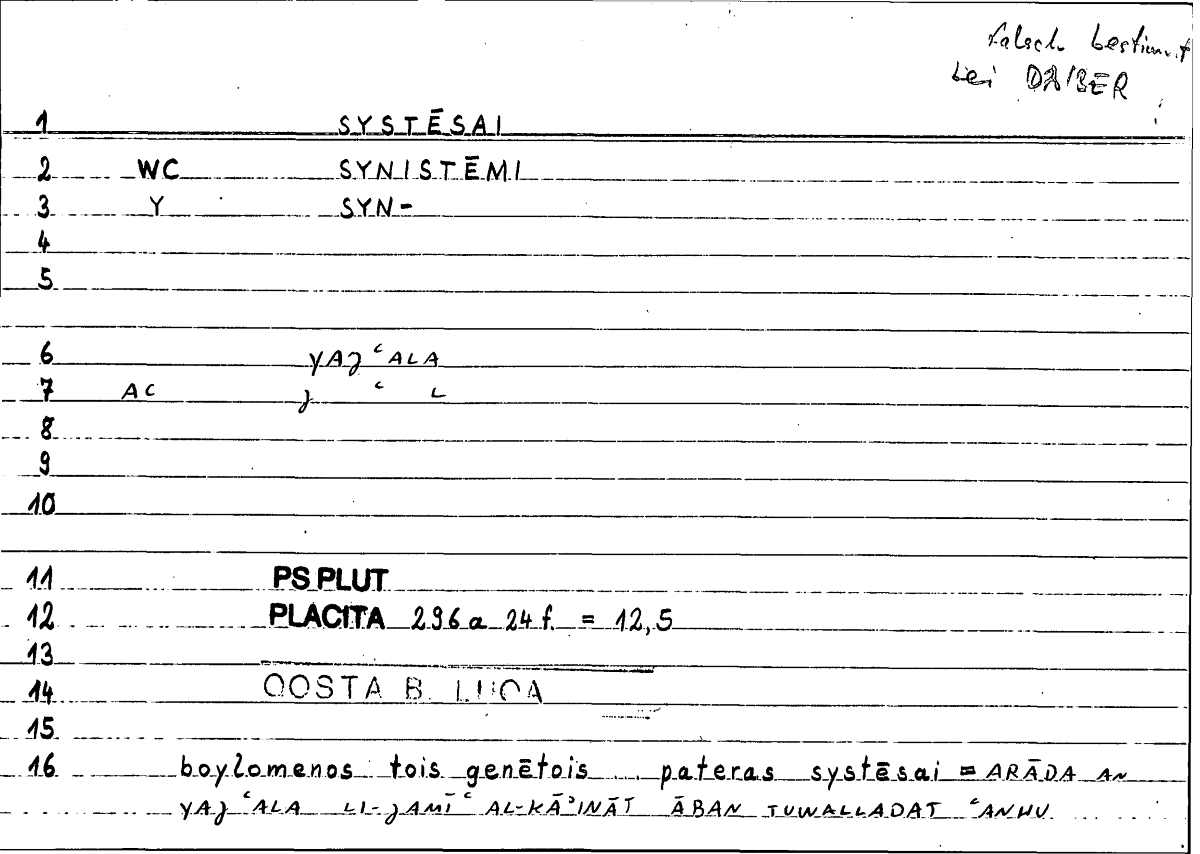 falsch bestimmt
bei DAIBER
1 SYSTĒSAI
2 WC SYNISTĒMI
3 Y SYN-
4
5
6 YAJʿALA
7 AC J ʿ L
8
9
10
11 PS PLUT
12 PLACITA 296a 24f. = 12,5
13
14 QOSTA B. LUQA
15
16 boylomenos tois genētois pateras systēsai = ARĀDA AN
YAJʿALA LI-JAMĪʿ AL-KĀʾINĀT ĀBAN TUWALLADAT ʿANHU